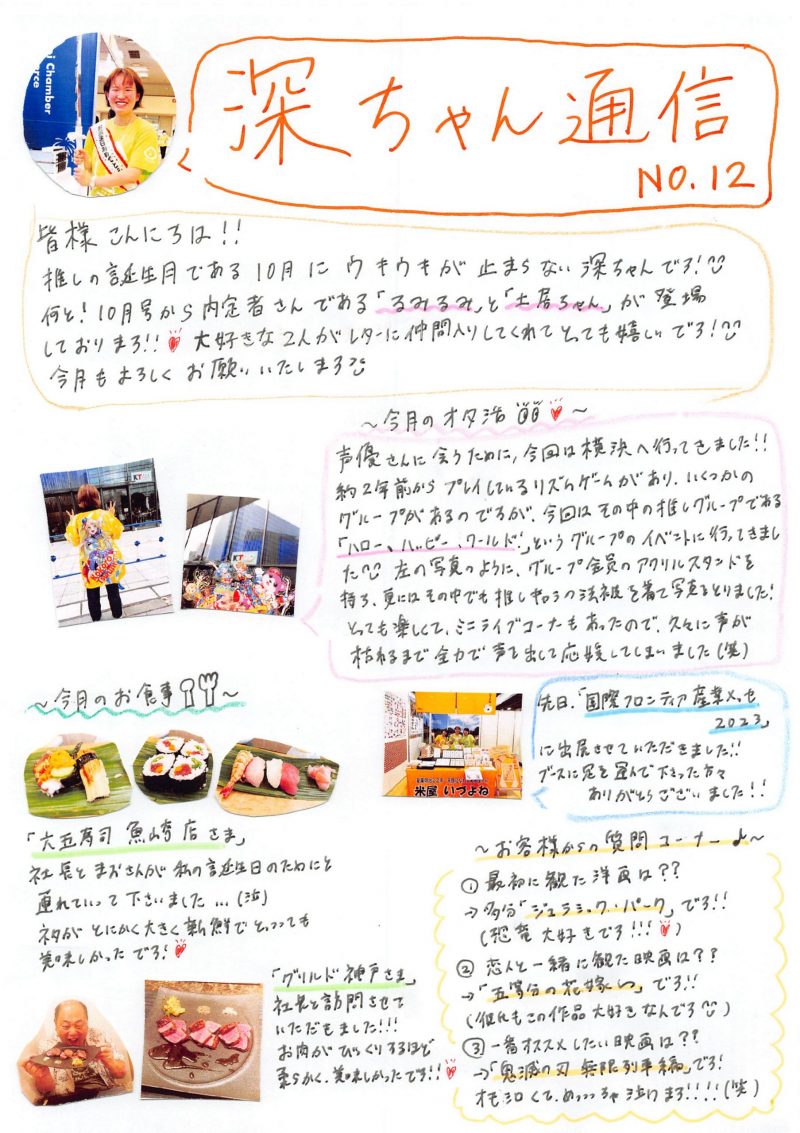 深ちゃん通信
NO.12
皆様こんにちは!!
推しの誕生月である10月にウキウキが止まらない深ちゃんです!
何と!10月号から内定者さんである「るみるみ」と「土居ちゃん」が登場
しております!!大好きな2人がレターに仲間入りしてくれてとっても嬉しいです!
今月もよろしくお願いいたします
～今月のオタ活～
声優さんに会うために、今回は横浜へ行ってきました!!
約2年前からプレイしているリズムゲームがあり、いくつかの
グループがあるのですが、今回はその中の推しグループである
「ハロー、ハッピーワールド!」というグループのイベントに行ってきまし
た 左の写真のように、グループ全員のアクリルスタンドを
持ち、更にはその中でも推しキャラの法被を着て写真をとりました!
とっても楽しくて、ミニライブコーナーもあったので、久々に声が
枯れるまで全力で声を出して応援してしまいました(笑)
KT
KT
～今月のお食事～
「六五寿司 魚崎店さま」
社長とまおさんが私の誕生日のためにと
連れていって下さいました…(泣)
ネタがとにかく大きく新鮮でとっっっても
美味しかったです!
先日、「国際フロンティア産業メッセ
2023」
に出展させていただきました!!
ブースに足を運んで下さった方々
ありがとうございました!!
米屋 いづよね
「グリルド神戸さま」
社長と訪問させて
いただきました!!!
お肉がびっくりするほど
柔らかく、美味しかったです!!
～お客様からの質問コーナー♪～
①最初に観た洋画は??
→多分「ジュラシック・パーク」です!!
(恐竜大好きです!!!)
②恋人と一緒に観た映画は??
→「五等分の花嫁」です!!
(彼氏もこの作品大好きなんです)
③一番オススメしたい映画は??
→「鬼滅の刃 無限列車編」です!
オモシロくて、めっっっちゃ泣けます!!!!(笑)